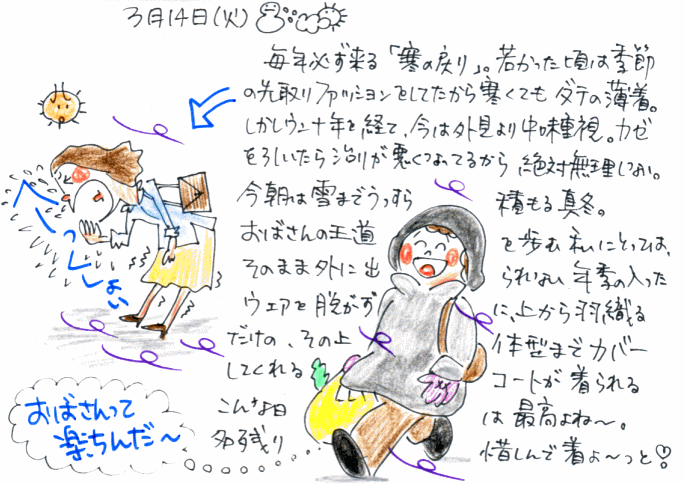 3月14日(火)
毎年必ず来る「寒の戻り」。若かった頃は季節
の先取りファッションをしてたから寒くてもダテの薄着。
しかしウン十年を経て、今は外見より中味重視。カゼ
をひいたら治りが悪くなってるから絶対無理しない。
今朝は雪までうっすら積もる真冬。
おばさんの王道を歩む私にとっては、
そのまま外に出られない年季の入った
ウェアを脱がずに、上から羽織る
だけの、その上体型までカバー
してくれるコートが着られる
こんな日は最高よね〜。
名残り惜しんで着よ〜っと♡
へーっくしょい
おばさんって
楽ちんだ〜